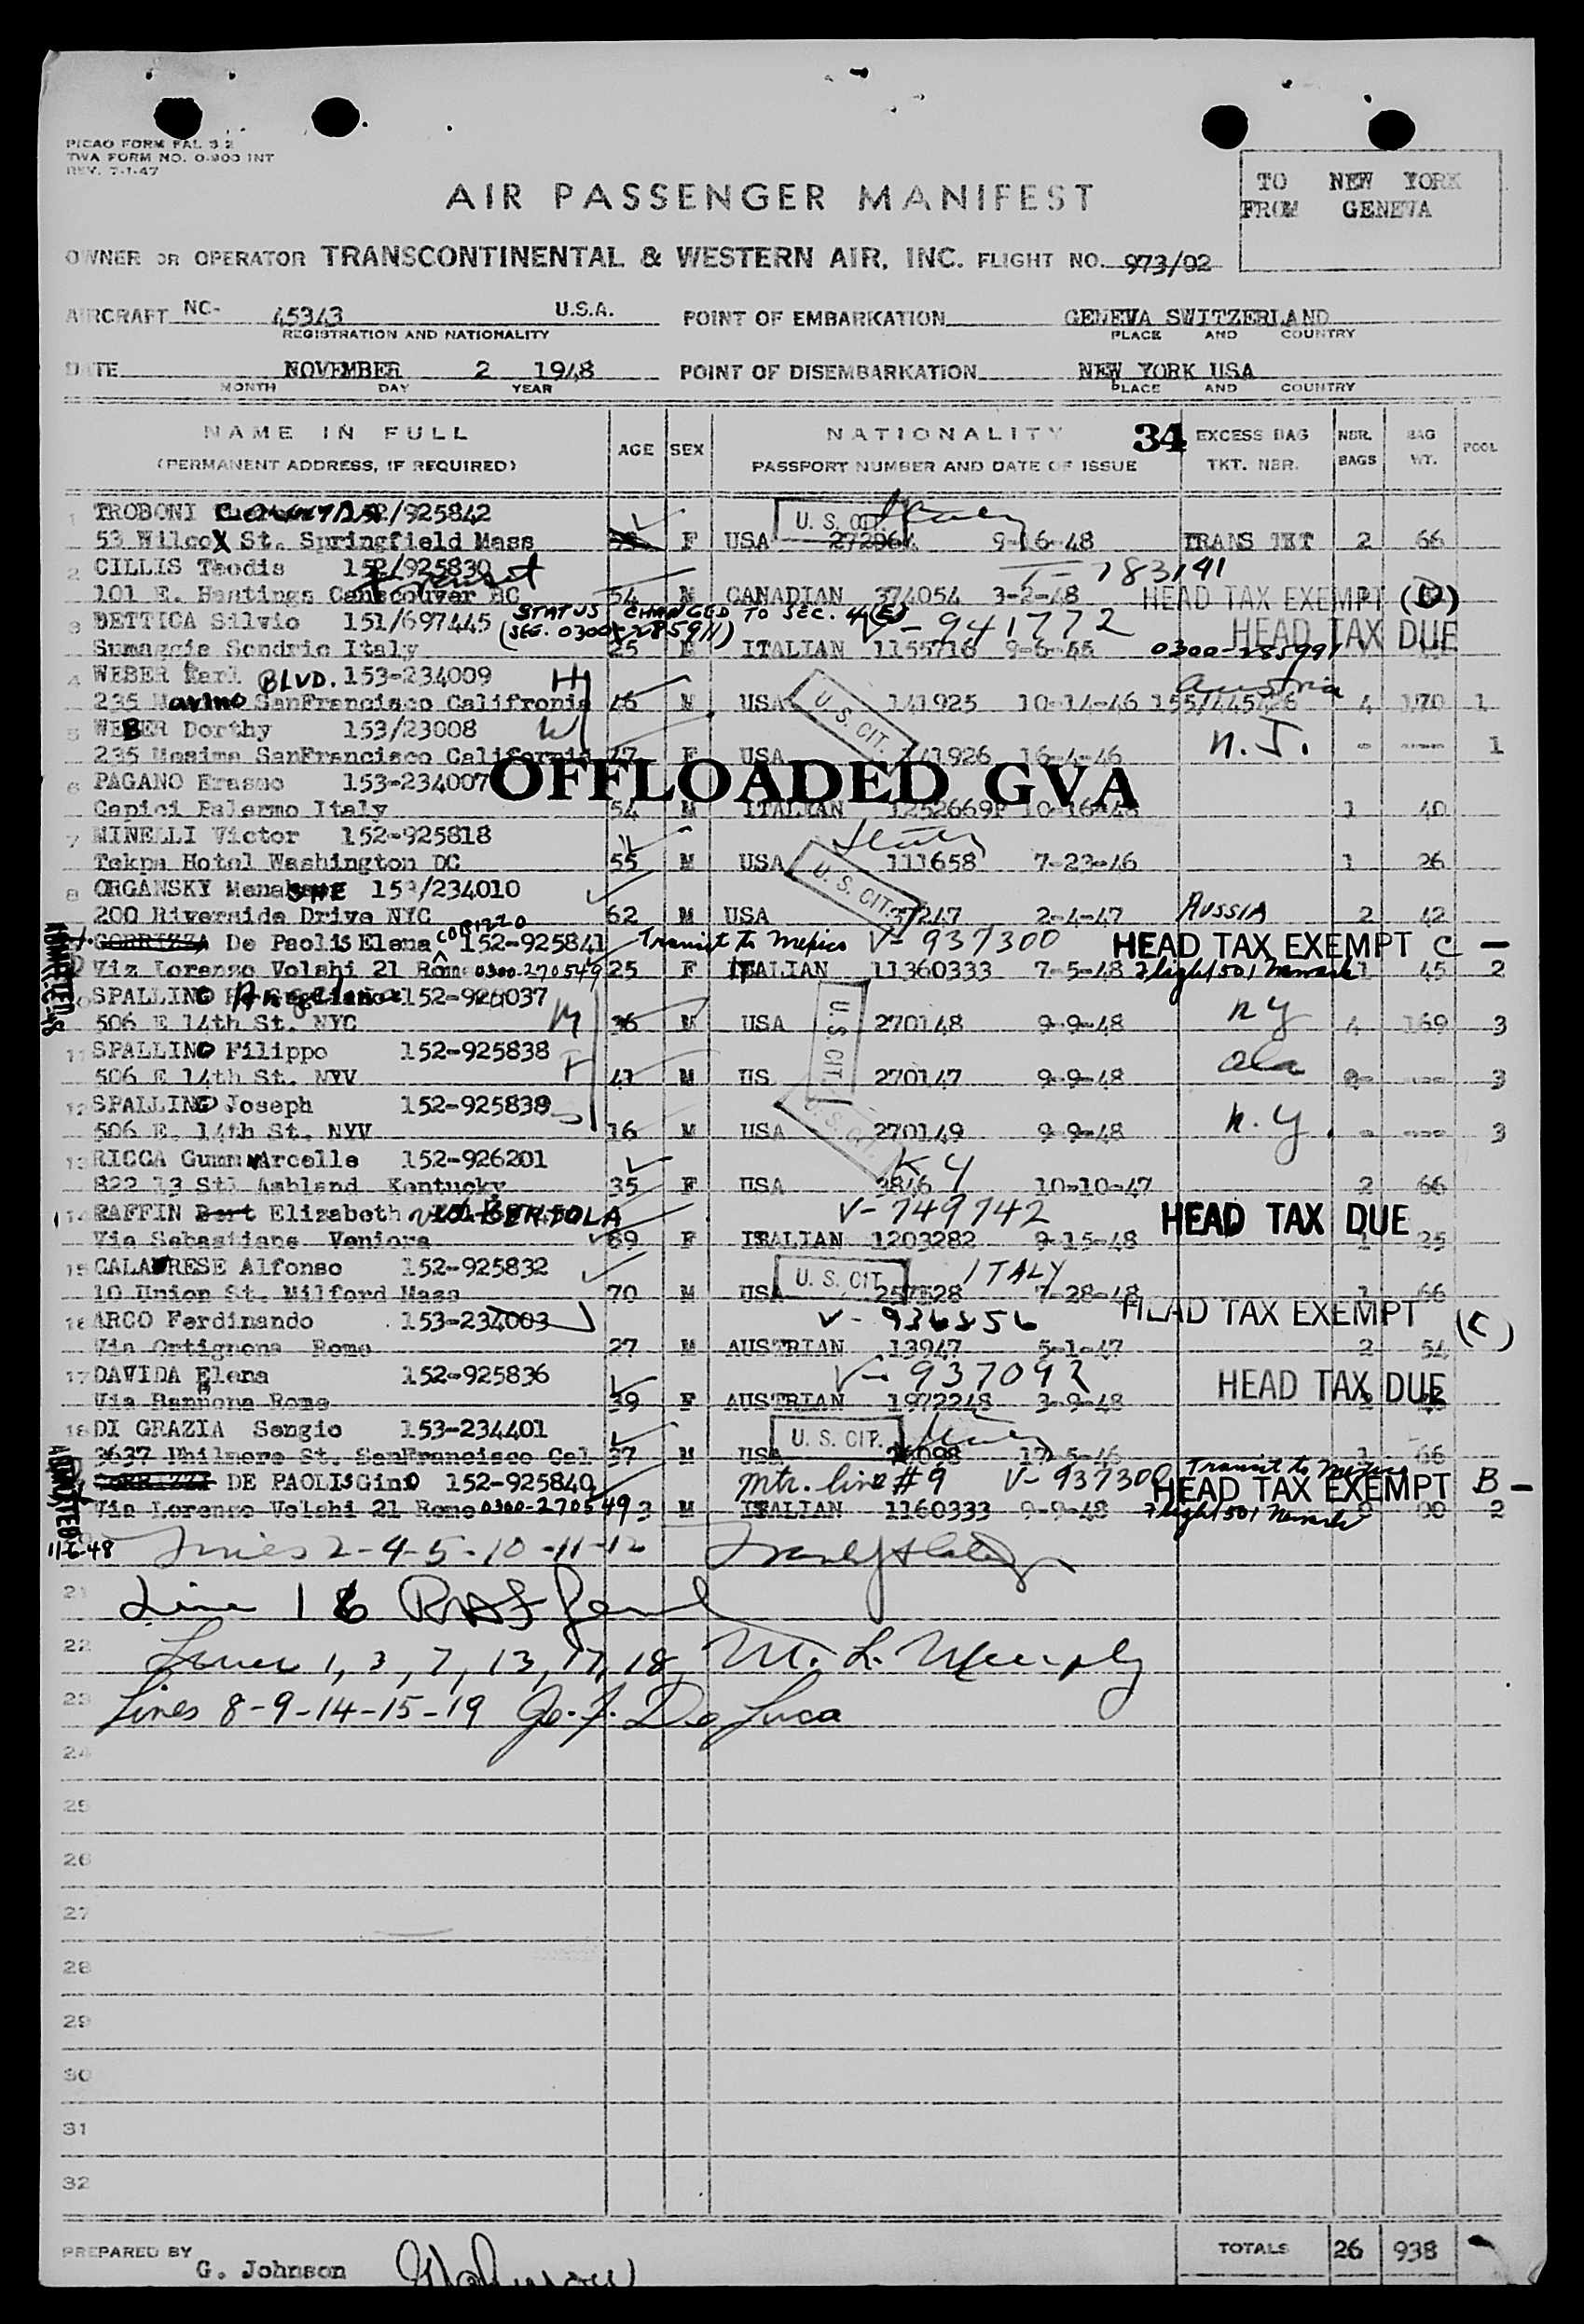 PICAO FORM FAL 3.2
TWA FORM NO. 0-900 INT
REV. 7-1-47
TO NEW YORK
FROM GENEVA
AIR PASSENGER MANIFEST
OWNER OR OPERATOR TRANSCONTINENTAL & WESTERN AIR, INC. FLIGHT NO. 973/02
AIRCRAFT NC- 45343 U.S.A. POINT OF EMBARKATION GENEVA SWITZERLAND
REGISTRATION AND NATIONALITY PLACE AND COUNTRY
DATE NOVEMBER 2 1948 POINT OF DISEMBARKATION NEW YORK USA
MONTH DAY YEAR PLACE AND COUNTRY
NAME IN FULL AGE SEX NATIONALITY 34 EXCESS BAG NBR. BAG POOL
(PERMANENT ADDRESS, IF REQUIRED) PASSPORT NUMBER AND DATE OF ISSUE TKT. NBR. BAGS WT.
1 TROBONI 152/925842 U. S. CIT. Italy
53 Wilcox St. Springfield Mass F USA 272964 9-16-48 TRANS TKT 2 66
2 CILLIS Teodis 152/925830 Transit T-183191
101 E. Hastings Vancouver BC 54 M CANADIAN 374054 3-2-48 HEAD TAX EXEMPT (D)
3 BETTICA Silvio 151/697445 STATUS CHANGED TO SEC. 4(E) V-941772 HEAD TAX DUE
Sumaggia Sondrio Italy 25 M ITALIAN 1155716 9-6-48 0300-285991
4 WEBER Karl BLVD. 153-234009 H U. S. CIT. Austria
235 Marino SanFrancisco Califronia 46 M USA 141925 10-14-46 155/445426 4 170 1
5 WEBER Dorthy 153/23008 W N.J.
235 Masima SanFrancisco California 47 F USA 141926 16-4-46 - --- 1
6 PAGANO Erasmo 153-234007 OFFLOADED GVA
Capici Palermo Italy 54 M ITALIAN 1252669P 10-16-48 1 40
7 MINELLI Victor 152-925818 Italy
Tekpa Hotel Washington DC 55 M USA U. S. CIT. 111658 7-23-46 1 26
8 ORGANSKY 153/234010
200 Riverside Drive NYC 62 M USA 37247 2-4-47 RUSSIA 2 42
De Paolis Elena CORIZZO 152-925841 Transit to Mexico V-937300 HEAD TAX EXEMPT C -
Via Lorenzo Volshi 21 Rome 0300-270549 25 F ITALIAN 11360333 7-5-48 Flight 501 Newark 1 45 2
ADMITTED
10 SPALLINO Angelina 152-926037 M U. S. CIT. N Y
506 E 14th St. NYC 36 M USA 270148 9-9-48 4 169 3
11 SPALLINO Filippo 152-925838 F Ala
506 E 14th St. NYV 41 M US 270147 9-9-48 --- 3
12 SPALLINO Joseph 152-925839 S U. S. CIT. N.Y.
506 E. 14th St. NYV 16 M USA 270149 9-9-48 - --- 3
13 RICCA Gumn Arcelle 152-926201 KY
822 13 Stl Ashland Kentucky 35 F USA 3846 10-10-47 2 66
14 RAFFIN Bert Elizabeth BERTOLA V-749742 HEAD TAX DUE
Via Sebastiano Veniora 69 F ITALIAN 1203282 9-15-48 1 25
15 CALABRESE Alfonso 152-925832 U. S. CIT ITALY
10 Union St. Milford Mass 70 M USA 257828 7-28-48 1 66
16 ARCO Ferdinando 153-234003 V-936856 HEAD TAX EXEMPT (C)
Via Ortignona Rome 27 M AUSTRIAN 13947 5-1-47 2 54
17 DAVIDA Elena 152-925836 V-937092 HEAD TAX DUE
Via Rannona Rome 39 F AUSTRIAN 1972248 3-9-48
18 DI GRAZIA Sengio 153-234401 U. S. CIT. Italy
3637 Philmore St. SanFrancisco Cal 37 M USA 26098 17-5-46 1 66
DE PAOLIS Gino 152-925840 Mtr. line #9 V-937300 Transit to Mexico HEAD TAX EXEMPT B -
Via Lorenzo Volshi 21 Rome 0300-270549 3 M ITALIAN 1160333 9-9-48 Flight 501 Newark 2
ADMITTED
11-6-48
Lines 2-4-5-10-11-12
21 Line 16
22 Lines 1, 3, 7, 13, 17, 18, M. L. Murphy
23 Lines 8-9-14-15-19 Jo. F. De Luca
24
25
26
27
28
29
30
31
32
PREPARED BY G. Johnson TOTALS 26 938